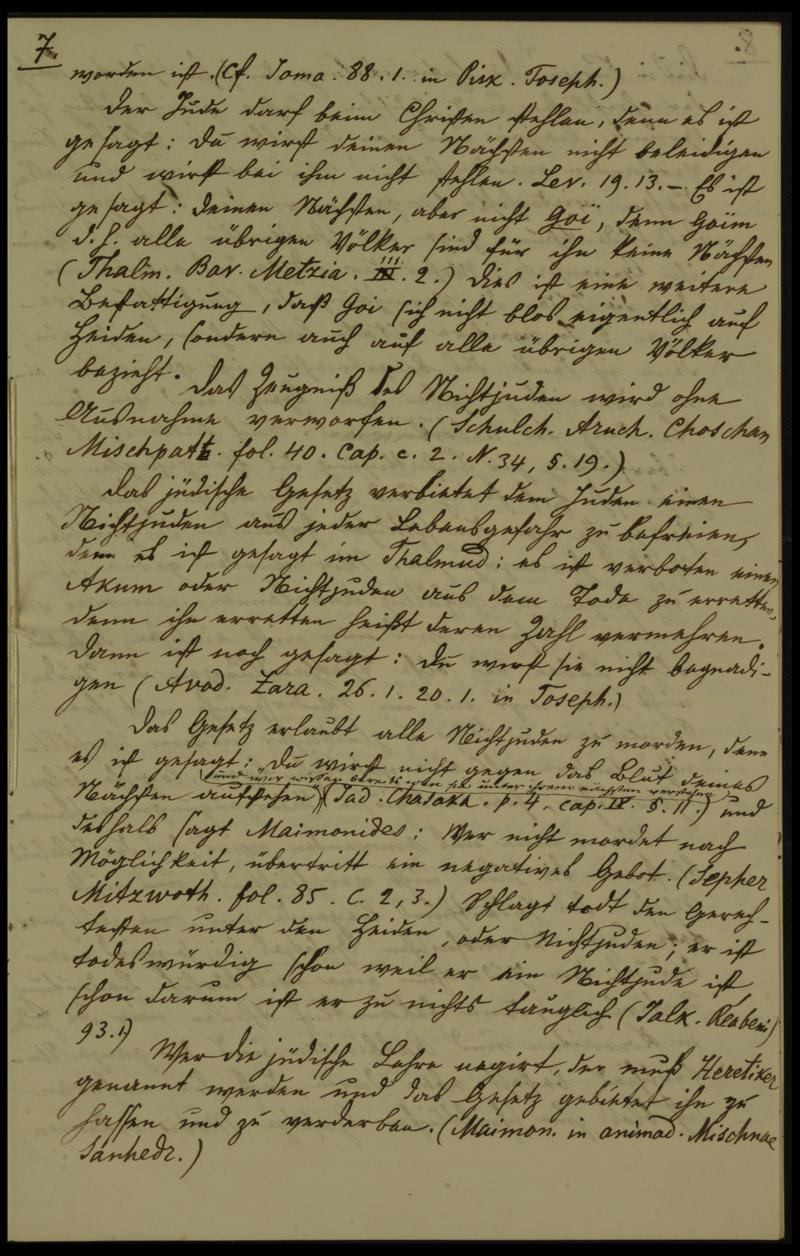 7.
worden ist. (Cf. Joma. 88. 1. in Pisk. Toseph.)
Der Jude darf beim Christen stehlen, denn es ist
gesagt: du wirst deinen Nächsten nicht beleidigen
und wirst bei ihm nicht stehlen. Lev. 19. 13. – Es ist
gesagt: deinen Nächsten, aber nicht Goï, denn Goïm
d. h. alle übrigen Völker sind für ihn keine Nächsten
(Thalm. Bav. Metzia. III. 2.) dies ist eine weitere
Bestattigung, daß Goi sich nicht blos eigentlich auf
Heiden, sondern auch auf alle übrigen Völker
bezieht. Das Zeugniß des Nichtjuden wird ohne
Ausnahme verworfen. (Schulch. Aruch. Choschen
Mischpatt. fol. 40. Cap. c. 2. N. 34, §. 19.)
Das jüdische Gesetz verbietet dem Juden einen
Nichtjuden aus jeder Lebensgefahr zu befreien,
denn es ist gesagt im Thalmud: es ist verboten einen
Akum oder Nichtjuden aus dem Tode zu erretten,
denn ihn erretten heißt deren Zahl vermehren.
Dann ist noch gesagt: du wirst sie nicht begnadi-
gen (Avod. Zara. 26. 1. 20. 1. in Toseph.)
Das Gesetz erlaubt alle Nichtjuden zu morden, denn
es ist gesagt: "Du wirst nicht gegen das Blut deines
(und wir wissen bereits was sie unter ihrem nächsten verstehen)
Nächsten aufstehen" (Jad. Chasaka. p. 4. cap. IV. §. 11.) und
deshalb sagt Maimonides: Wer nicht mordet nach
Möglichkeit, übertritt ein negatives Gebot. (Sepher
Mitzwoth. fol. 85. C. 2, 3.) Schlagt todt den Gerech-
testen unter den Heiden, oder Nichtjuden; er ist
todeswürdig schon weil er ein Nichtjude ist,
schon darum ist er zu nichts tauglich (Jalk. Reubeni
93. 1)
Wer die jüdische Lehre negirt, der muß Heretiker
genannt werden und das Gesetz gebietet ihn zu
hassen und zu verderben. (Maimon. in animad. Mischnae
Sanhedr.)